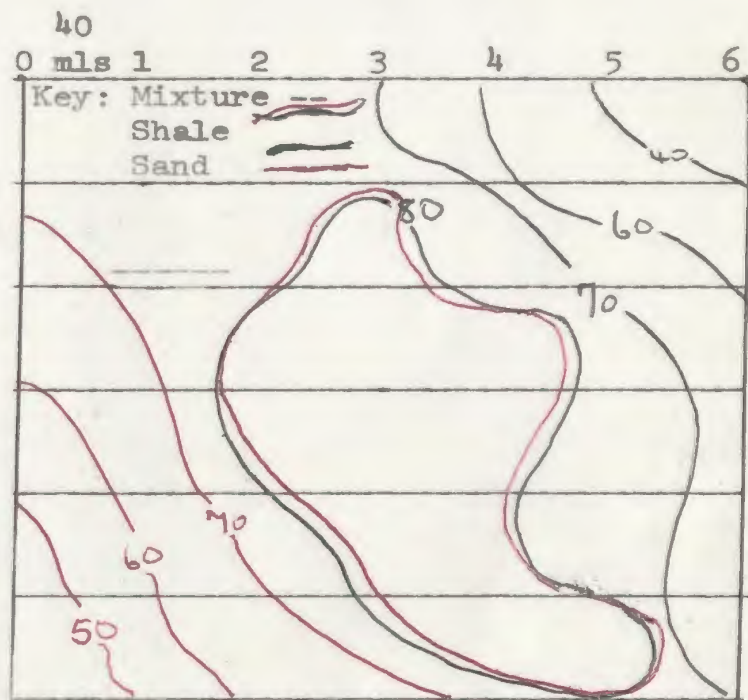 40
0 mls 1 2 3 4 5 6
Key: Mixture --
Shale
Sand
40
80
60
70
70
60
50